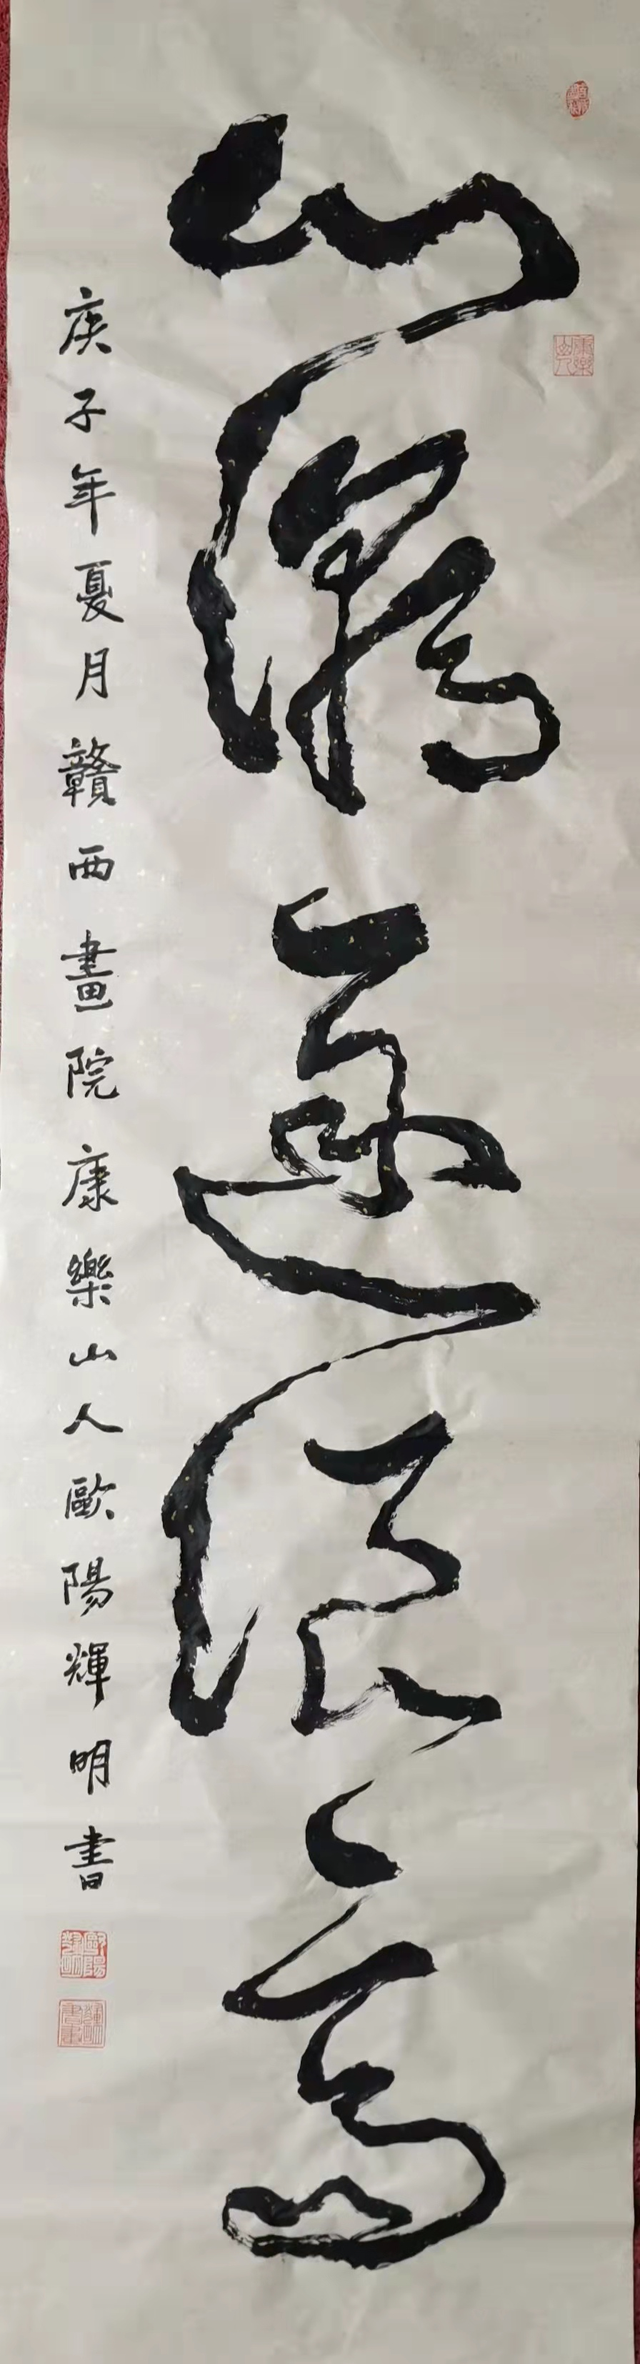 心潮逐浪高
庚子年夏月贛西畫院康樂山人歐陽輝明書